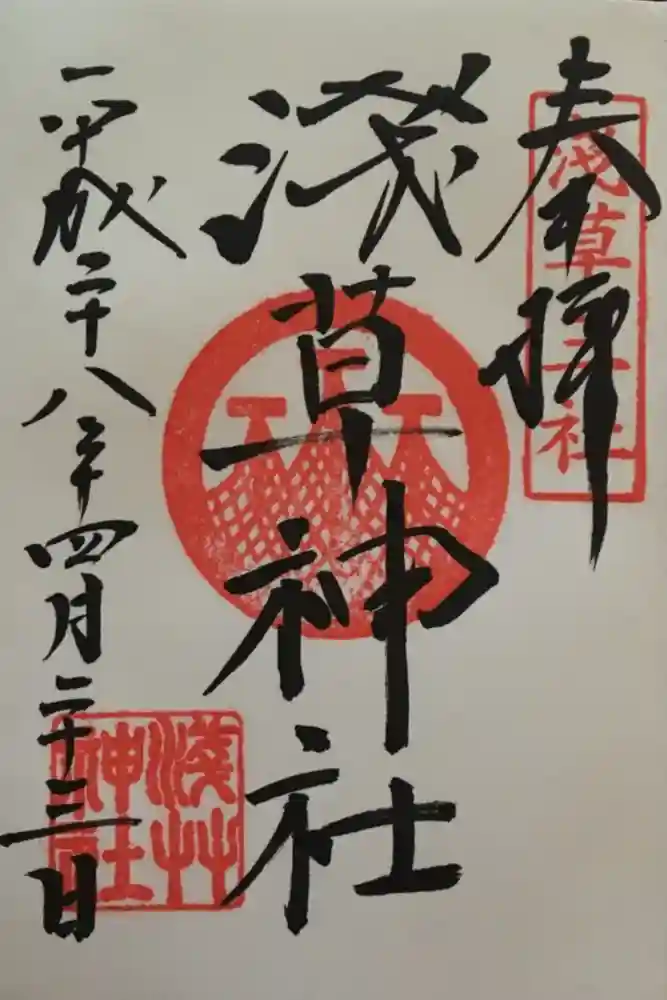 奉拝
淺草三社
浅草神社
淺艸神社
平成二十八年四月二十三日